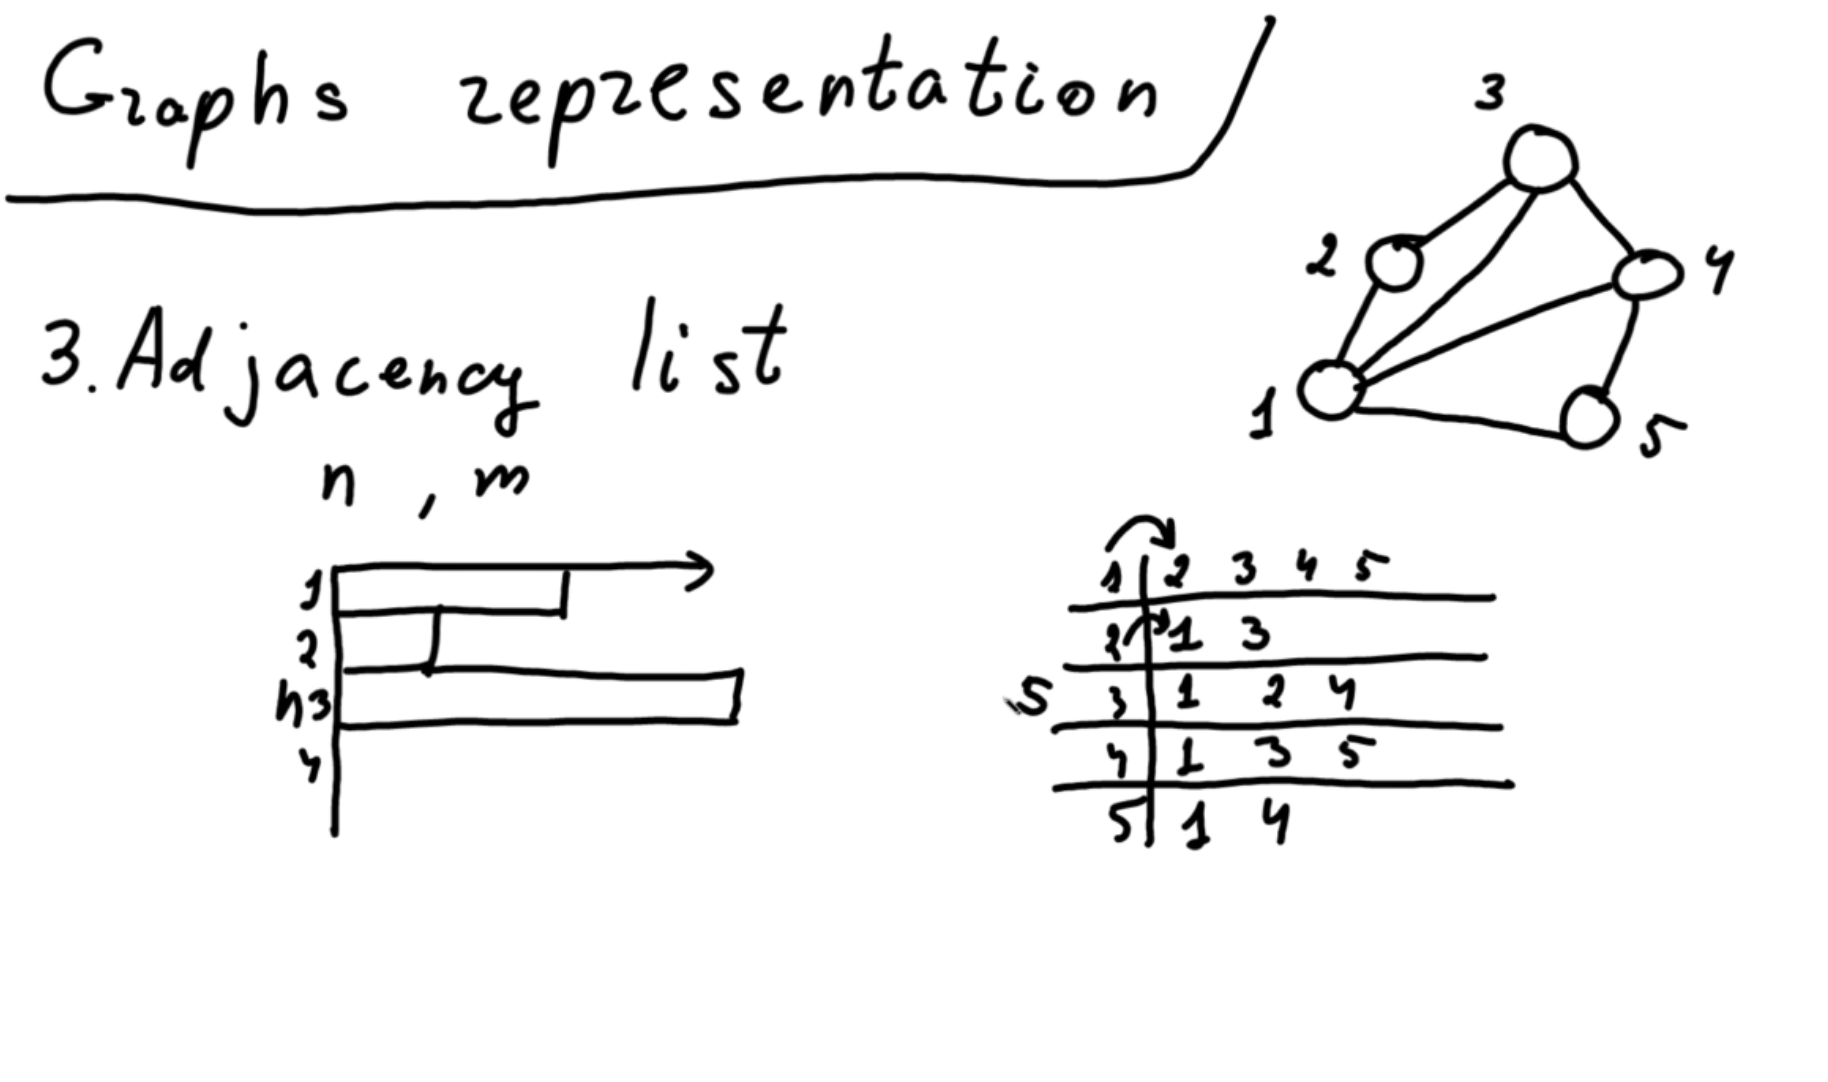 Graphs representation
3. Adjacency list
n , m
1
2
n 3
4
3
2
4
1
5
1 2 3 4 5
2 1 3
5
3 1 2 4
4 1 3 5
5 1 4